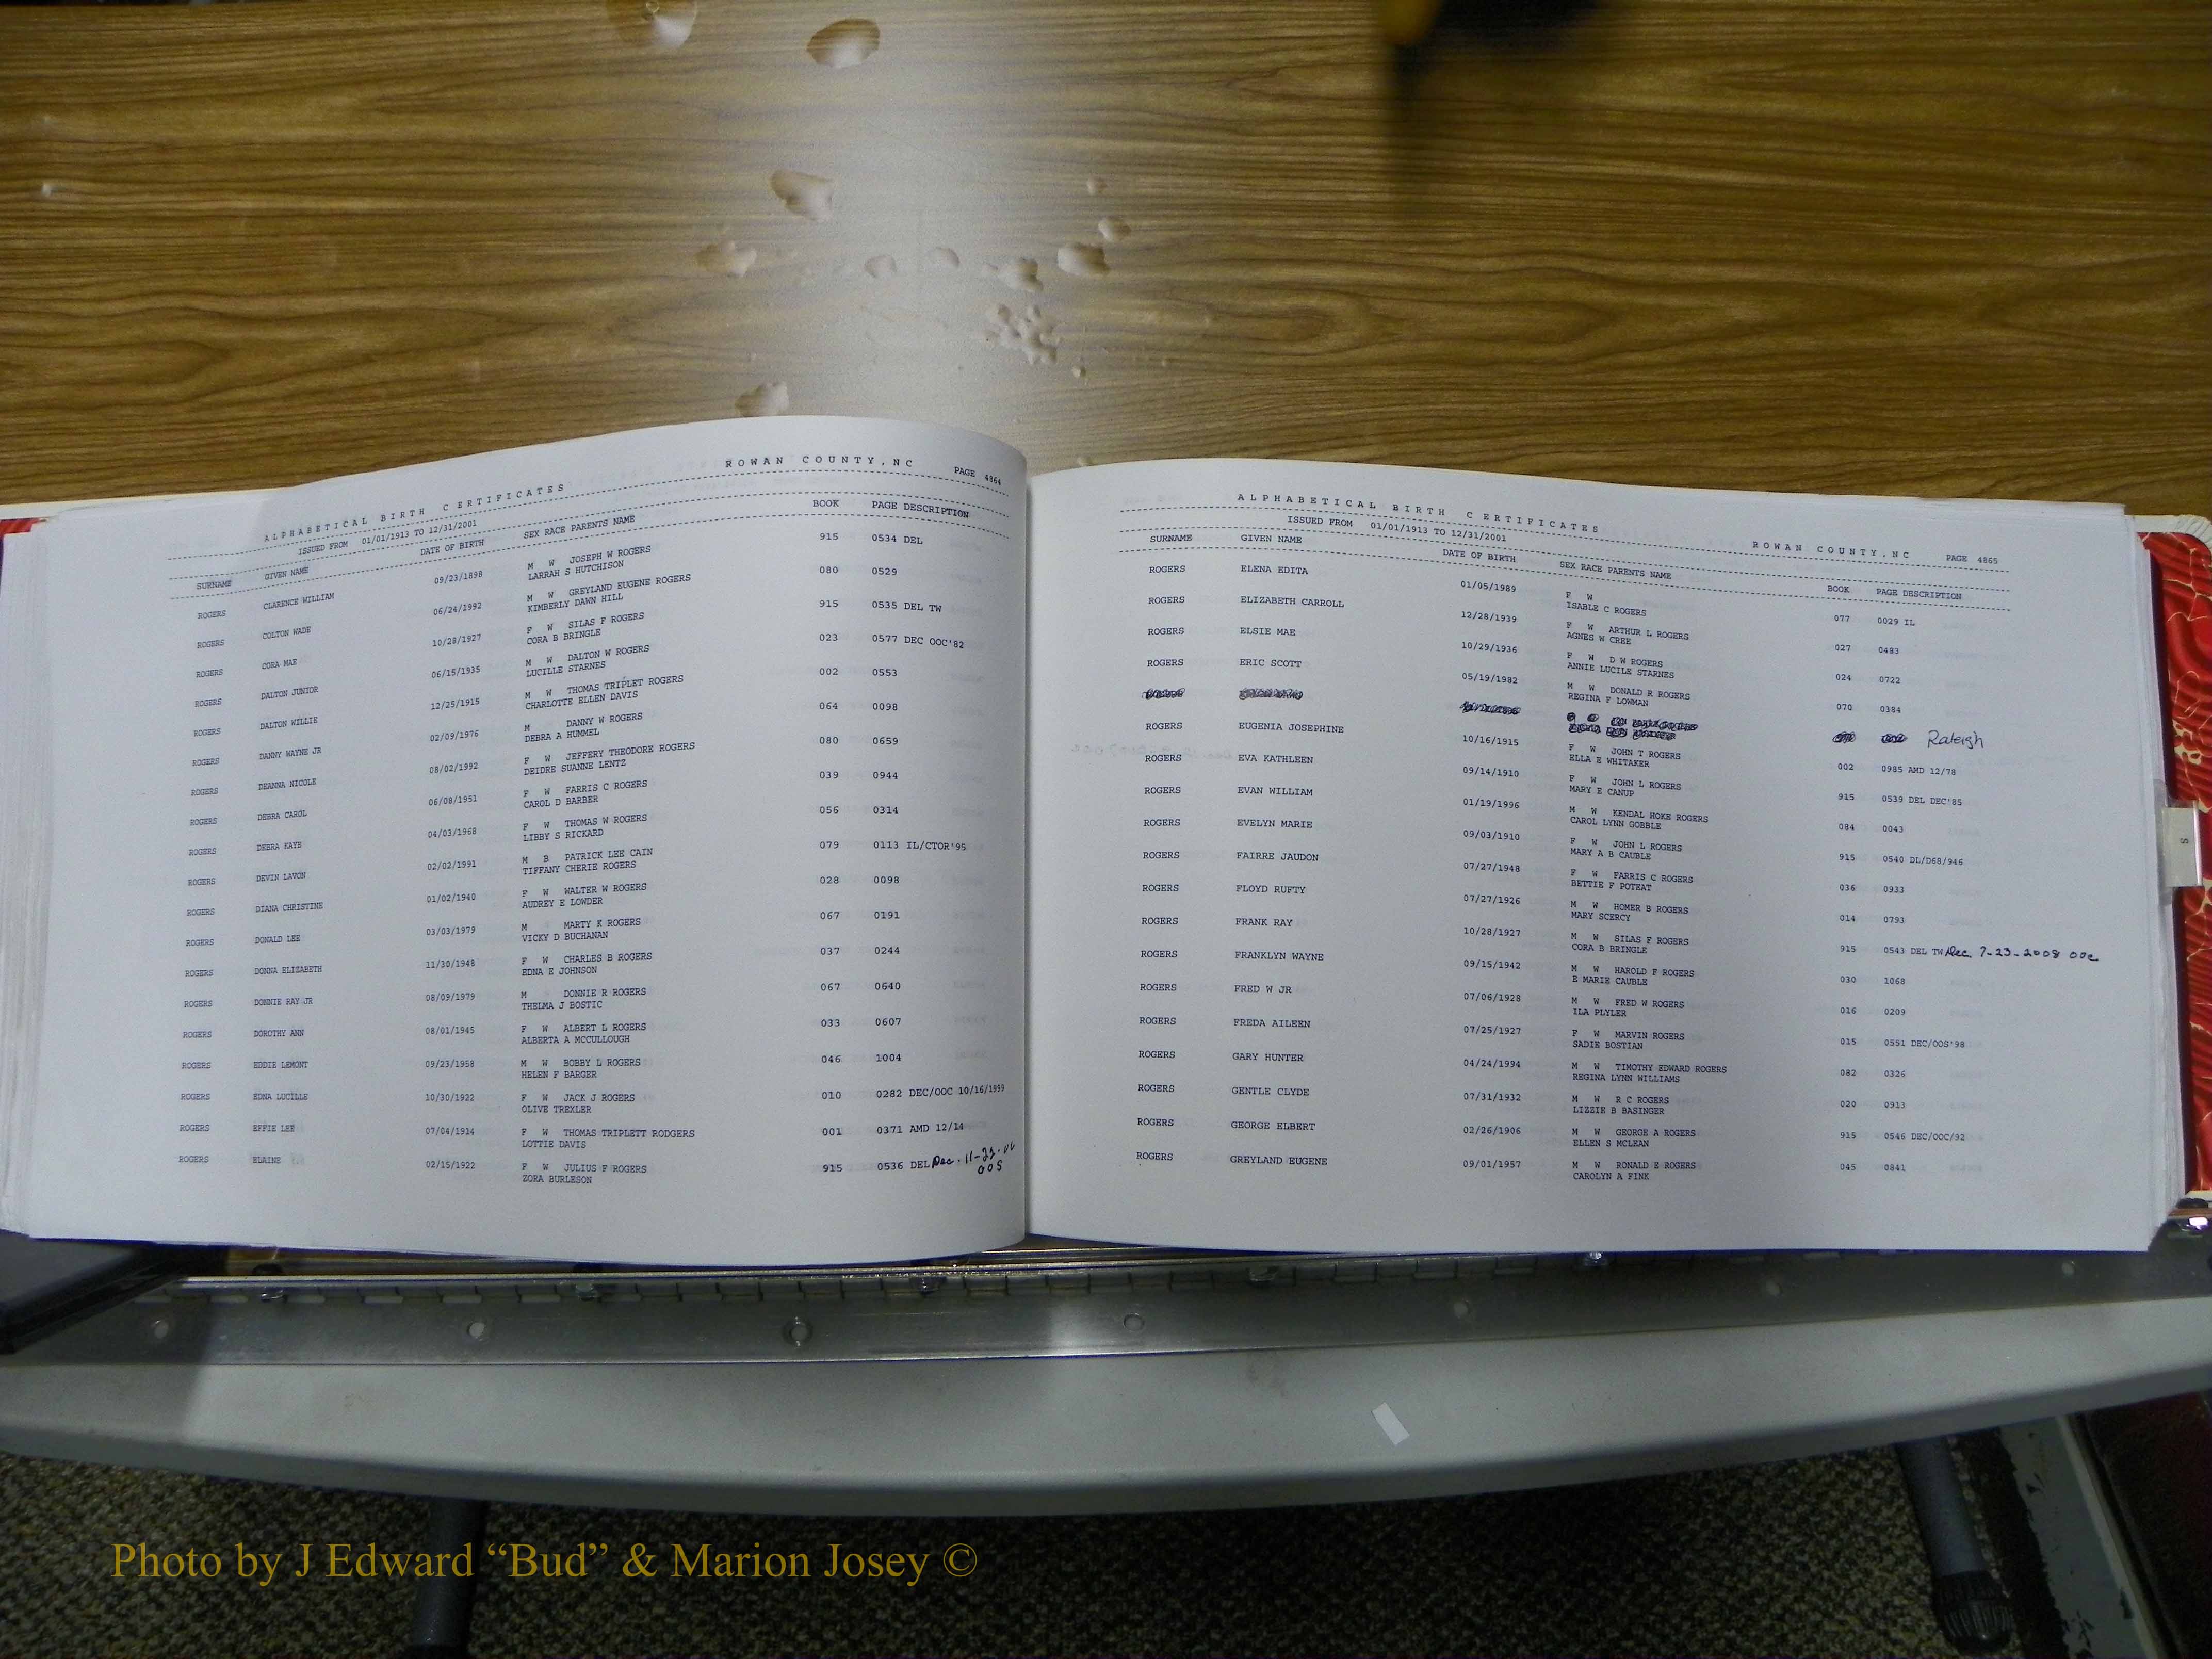 ALPHABETICAL BIRTH CERTIFICATES ROWAN COUNTY, NC PAGE 4864
ISSUED FROM 01/01/1913 TO 12/31/2001
SURNAME GIVEN NAME DATE OF BIRTH SEX RACE PARENTS NAME BOOK PAGE DESCRIPTION
ROGERS CLARENCE WILLIAM 09/23/1898 M W JOSEPH W ROGERS 915 0534 DEL
LARRAH S HUTCHISON
ROGERS COLTON WADE 06/24/1992 M W GREYLAND EUGENE ROGERS 080 0529
KIMBERLY DAWN HILL
ROGERS CORA MAE 10/28/1927 F W SILAS F ROGERS 915 0535 DEL TW
CORA B BRINGLE
ROGERS DALTON JUNIOR 06/15/1935 M W DALTON W ROGERS 023 0577 DEC OOC'82
LUCILLE STARNES
ROGERS DALTON WILLIE 12/25/1915 M W THOMAS TRIPLET ROGERS 002 0553
CHARLOTTE ELLEN DAVIS
ROGERS DANNY WAYNE JR 02/09/1976 M DANNY W ROGERS 064 0098
DEBRA A HUMMEL
ROGERS DEANNA NICOLE 08/02/1992 F W JEFFERY THEODORE ROGERS 080 0659
DEIDRE SUANNE LENTZ
ROGERS DEBRA CAROL 06/08/1951 F W FARRIS C ROGERS 039 0944
CAROL D BARBER
ROGERS DEBRA KAYE 04/03/1968 F W THOMAS W ROGERS 056 0314
LIBBY S RICKARD
ROGERS DEVIN LAVON 02/02/1991 M B PATRICK LEE CAIN 079 0113 IL/CTOR'95
TIFFANY CHERIE ROGERS
ROGERS DIANA CHRISTINE 01/02/1940 F W WALTER W ROGERS 028 0098
AUDREY E LOWDER
ROGERS DONALD LEE 03/03/1979 M MARTY K ROGERS 067 0191
VICKY D BUCHANAN
ROGERS DONNA ELIZABETH 11/30/1948 F W CHARLES B ROGERS 037 0244
EDNA E JOHNSON
ROGERS DONNIE RAY JR 08/09/1979 M DONNIE R ROGERS 067 0640
THELMA J BOSTIC
ROGERS DOROTHY ANN 08/01/1945 F W ALBERT L ROGERS 033 0607
ALBERTA A MCCULLOUGH
ROGERS EDDIE LEMONT 09/23/1958 M W BOBBY L ROGERS 046 1004
HELEN F BARGER
ROGERS EDNA LUCILLE 10/30/1922 F W JACK J ROGERS 010 0282 DEC/OOC 10/16/1999
OLIVE TREXLER
ROGERS EFFIE LEE 07/04/1914 F W THOMAS TRIPLETT RODGERS 001 0371 AMD 12/14
LOTTIE DAVIS
ROGERS ELAINE 02/15/1922 F W JULIUS F ROGERS 915 0536 DEL Dec.
ZORA BURLESON OOS
ALPHABETICAL BIRTH CERTIFICATES ROWAN COUNTY, NC PAGE 4865
ISSUED FROM 01/01/1913 TO 12/31/2001
SURNAME GIVEN NAME DATE OF BIRTH SEX RACE PARENTS NAME BOOK PAGE DESCRIPTION
ROGERS ELENA EDITA 01/05/1989 F W 077 0029 IL
ISABLE C ROGERS
ROGERS ELIZABETH CARROLL 12/28/1939 F W ARTHUR L ROGERS 027 0483
AGNES W CREE
ROGERS ELSIE MAE 10/29/1936 F W D W ROGERS 024 0722
ANNIE LUCILE STARNES
ROGERS ERIC SCOTT 05/19/1982 M W DONALD R ROGERS 070 0384
REGINA F LOWMAN
Raleigh
ROGERS EUGENIA JOSEPHINE 10/16/1915 F W JOHN T ROGERS 002 0985 AMD 12/78
ELLA E WHITAKER
ROGERS EVA KATHLEEN 09/14/1910 F W JOHN L ROGERS 915 0539 DEL DEC'85
MARY E CANUP
ROGERS EVAN WILLIAM 01/19/1996 M W KENDAL HOKE ROGERS 084 0043
CAROL LYNN GOBBLE
ROGERS EVELYN MARIE 09/03/1910 F W JOHN L ROGERS 915 0540 DL/D68/946
MARY A B CAUBLE
ROGERS FAIRRE JAUDON 07/27/1948 F W FARRIS C ROGERS 036 0933
BETTIE F POTEAT
ROGERS FLOYD RUFTY 07/27/1926 M W HOMER B ROGERS 014 0793
MARY SCERCY
ROGERS FRANK RAY 10/28/1927 M W SILAS F ROGERS 915 0543 DEL TW Dec. 7-23-2008 OOC
CORA B BRINGLE
ROGERS FRANKLYN WAYNE 09/15/1942 M W HAROLD F ROGERS 030 1068
E MARIE CAUBLE
ROGERS FRED W JR 07/06/1928 M W FRED W ROGERS 016 0209
ILA PLYLER
ROGERS FREDA AILEEN 07/25/1927 F W MARVIN ROGERS 015 0551 DEC/OOS'98
SADIE BOSTIAN
ROGERS GARY HUNTER 04/24/1994 M W TIMOTHY EDWARD ROGERS 082 0326
REGINA LYNN WILLIAMS
ROGERS GENTLE CLYDE 07/31/1932 M W R C ROGERS 020 0913
LIZZIE B BASINGER
ROGERS GEORGE ELBERT 02/26/1906 M W GEORGE A ROGERS 915 0546 DEC/OOC/92
ELLEN S MCLEAN
ROGERS GREYLAND EUGENE 09/01/1957 M W RONALD E ROGERS 045 0841
CAROLYN A FINK
Photo by J Edward “Bud” & Marion Josey ©